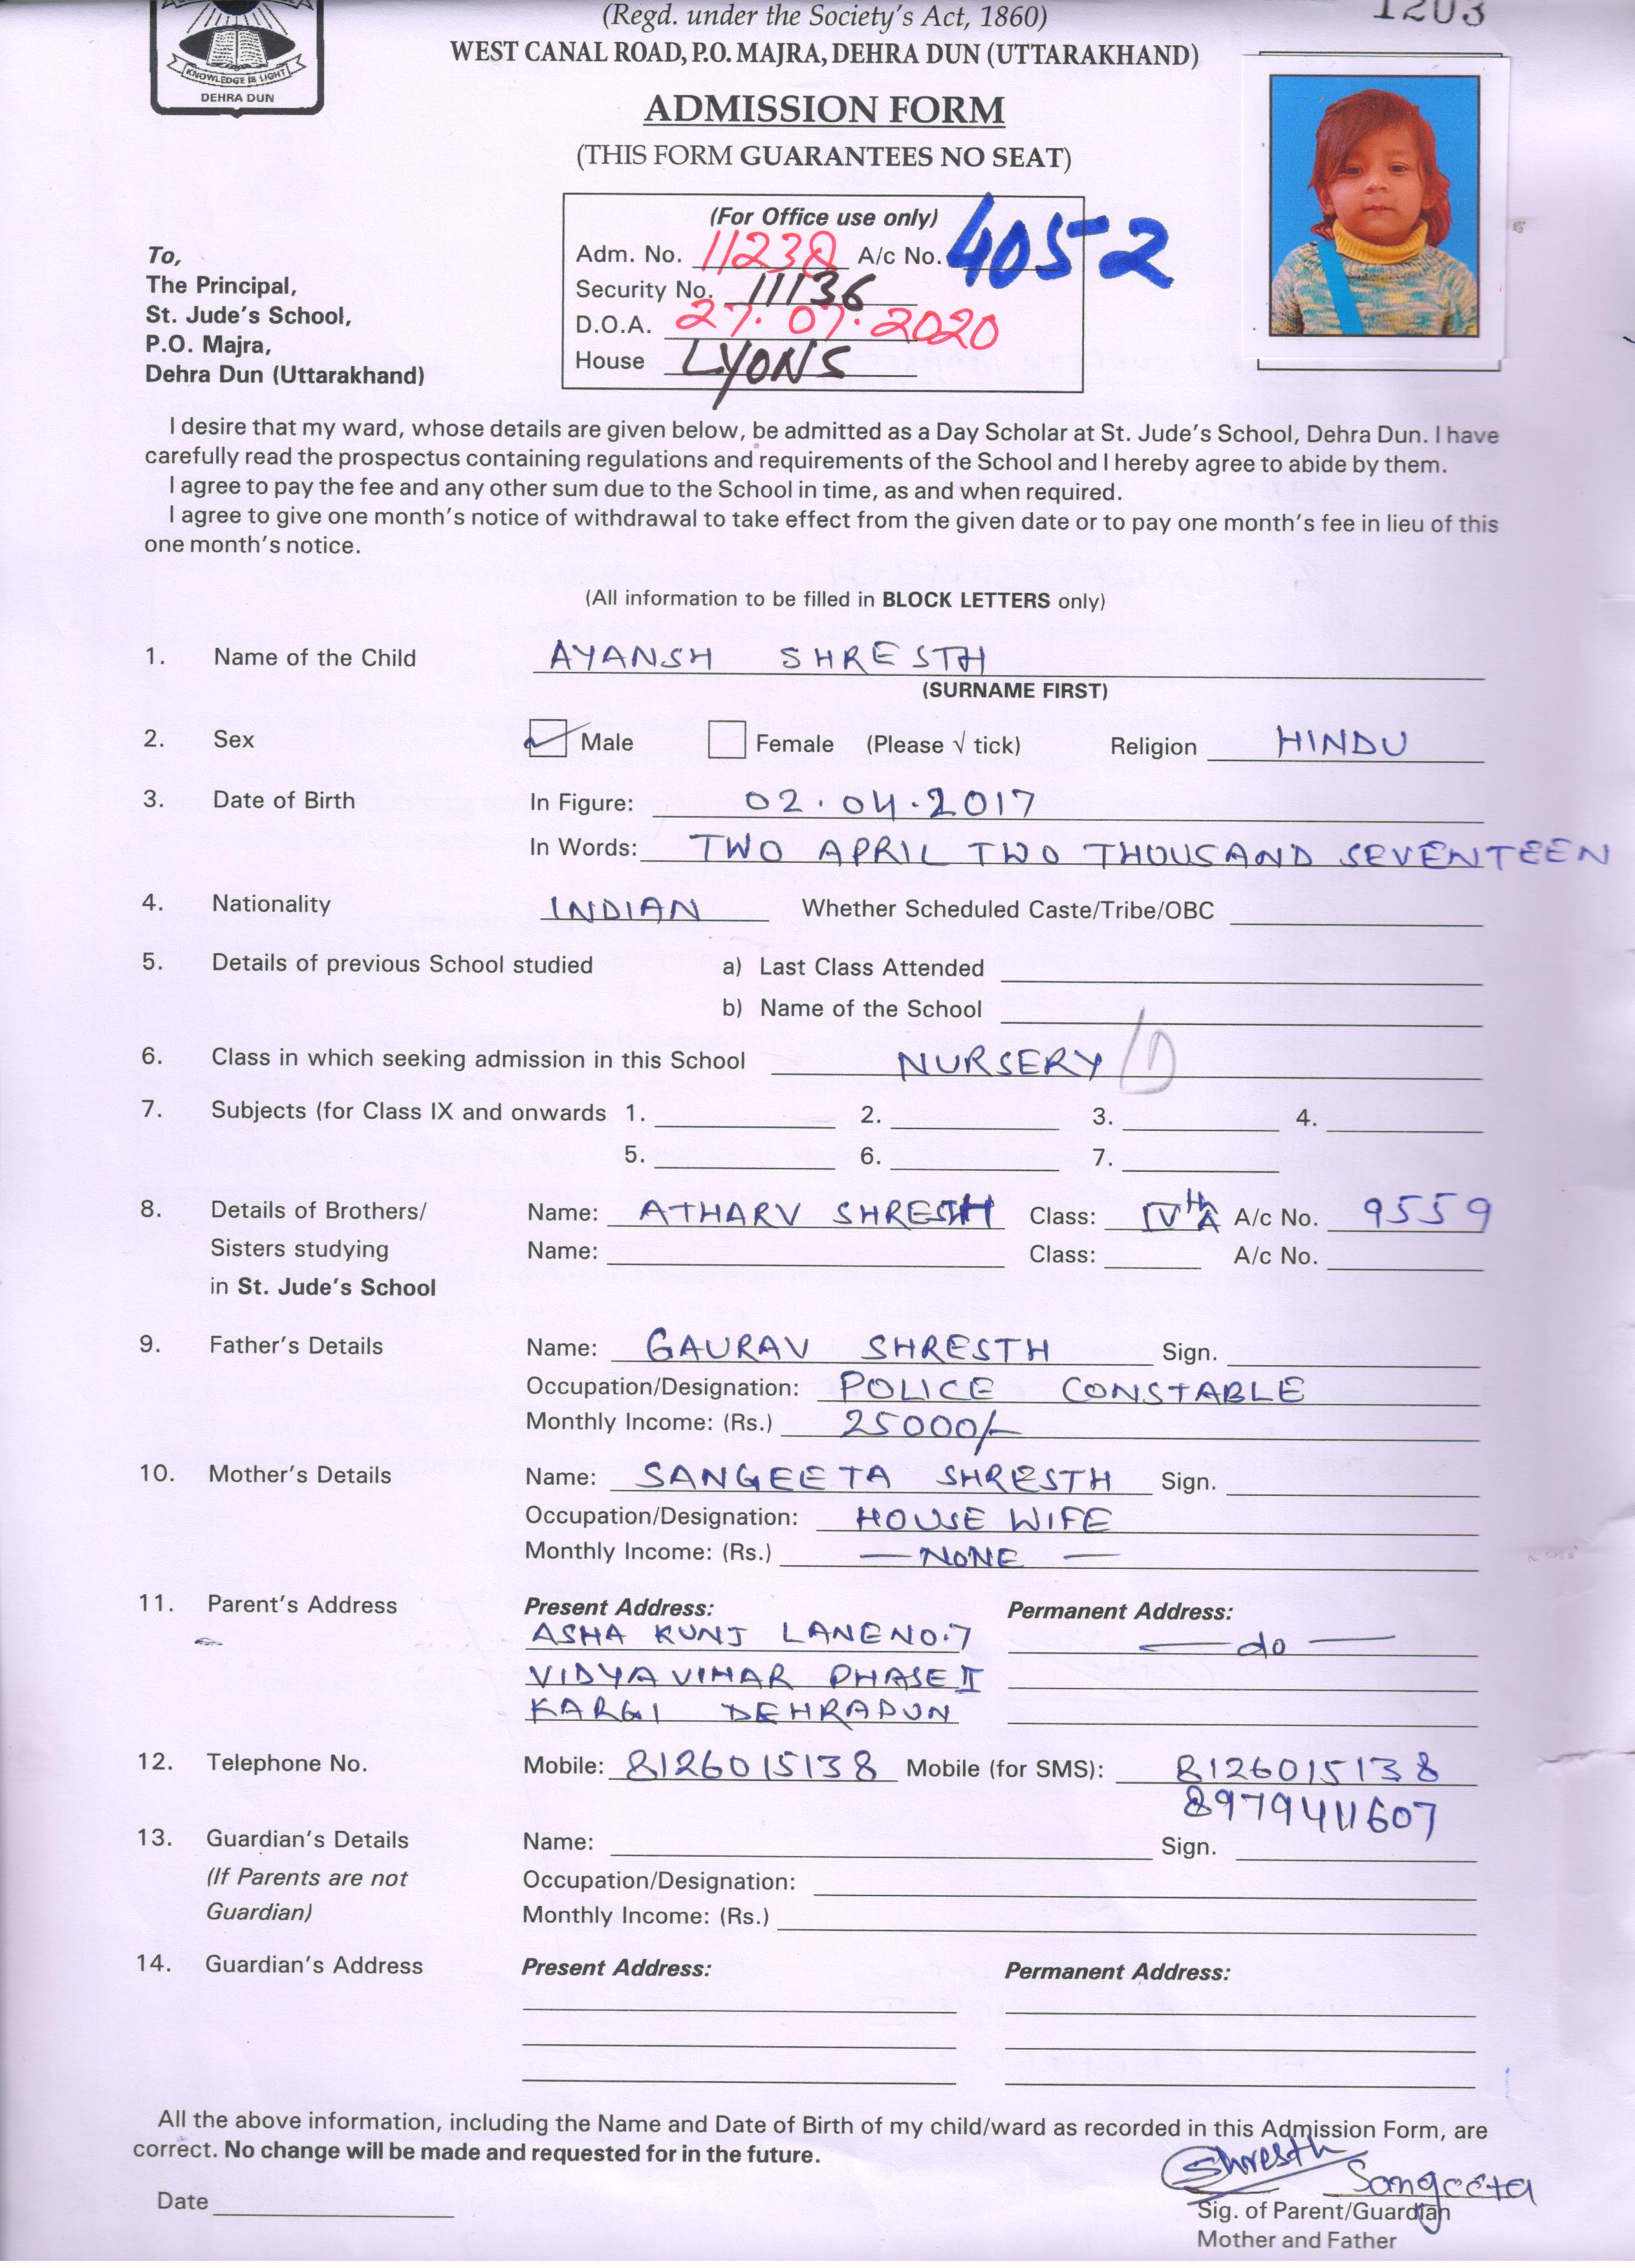 (Regd. under the Society's Act, 1860)
1203
WEST CANAL ROAD, P.O. MAJRA, DEHRA DUN (UTTARAKHAND)
KNOWLEDGE IS LIGHT
DEHRA DUN
ADMISSION FORM
(THIS FORM GUARANTEES NO SEAT)
(For Office use only)
Adm. No. 11238 A/c No. 4052
Security No. 11136
D.O.A. 27.07.2020
House LYONS
To,
The Principal,
St. Jude's School,
P.O. Majra,
Dehra Dun (Uttarakhand)
I desire that my ward, whose details are given below, be admitted as a Day Scholar at St. Jude's School, Dehra Dun. I have
carefully read the prospectus containing regulations and requirements of the School and I hereby agree to abide by them.
I agree to pay the fee and any other sum due to the School in time, as and when required.
I agree to give one month's notice of withdrawal to take effect from the given date or to pay one month's fee in lieu of this
one month's notice.
(All information to be filled in BLOCK LETTERS only)
1. Name of the Child AYANSH SHRESTH
(SURNAME FIRST)
2. Sex Male Female (Please √ tick) Religion HINDU
3. Date of Birth In Figure: 02.04.2017
In Words: TWO APRIL TWO THOUSAND SEVENTEEN
4. Nationality INDIAN Whether Scheduled Caste/Tribe/OBC
5. Details of previous School studied a) Last Class Attended
b) Name of the School
6. Class in which seeking admission in this School NURSERY /D
7. Subjects (for Class IX and onwards 1. 2. 3. 4.
5. 6. 7.
8. Details of Brothers/ Name: ATHARV SHRESTH Class: IVTH A A/c No. 9559
Sisters studying Name: Class: A/c No.
in St. Jude's School
9. Father's Details Name: GAURAV SHRESTH Sign.
Occupation/Designation: POLICE CONSTABLE
Monthly Income: (Rs.) 25000/-
10. Mother's Details Name: SANGEETA SHRESTH Sign.
Occupation/Designation: HOUSE WIFE
Monthly Income: (Rs.) — NONE —
11. Parent's Address Present Address: Permanent Address:
ASHA KUNJ LANE NO.7 — do —
VIDYA VIHAR PHASE II
KARGI DEHRADUN
12. Telephone No. Mobile: 8126015138 Mobile (for SMS): 8126015138
8979411607
13. Guardian's Details Name: Sign.
(If Parents are not Occupation/Designation:
Guardian) Monthly Income: (Rs.)
14. Guardian's Address Present Address: Permanent Address:
All the above information, including the Name and Date of Birth of my child/ward as recorded in this Admission Form, are
correct. No change will be made and requested for in the future.
Shresth Sangeeta
Date Sig. of Parent/Guardian
Mother and Father